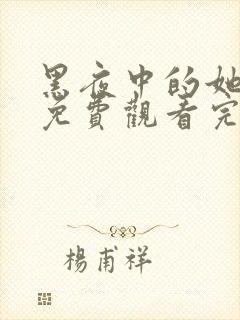 黑夜中的她
免費觀看完
楊甫祥